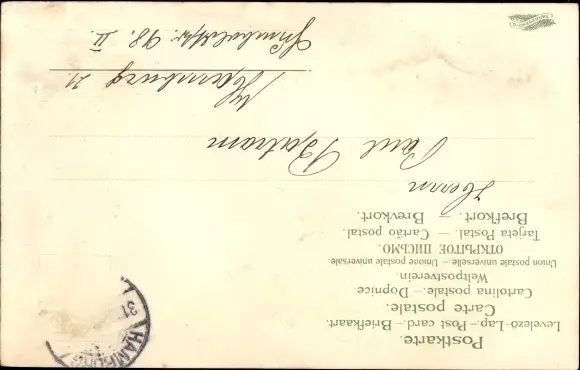 Postkarte.
Levelező-Lap. – Post card. – Briefkaart.
Carte postale.
Cartolina postale. – Dopnice
Weltpostverein.
Union postale universelle – Unione postale universale.
ОТКРЫТОЕ ПИСЬМО.
Tarjeta Postal. – Cartão postal.
Brefkort. – Brevkort.
HAMBURG
31
Herrn
Paul Bartram
Hamburg 21
98. II.